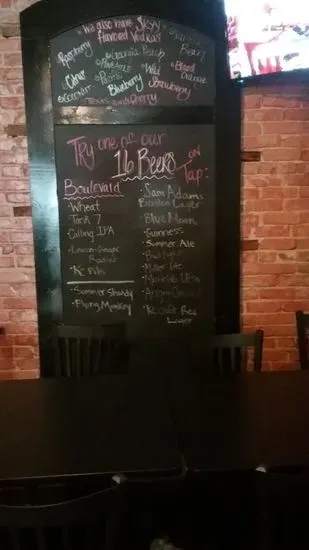 We also have SKYY
Flavored Vodkas
Raspberry
Georgia Peach
Plain
Pineapple
Citrus
Wild
Strawberry
Blood
Orange
Coconut
Blueberry
Texas
Cherry
Try one of our
16 Beers on
Tap:
Boulevard
-Wheat
-Tank 7
-Calling IPA
-Lemon-Ginger
Radler
-KC Pils
-Summer Shandy
-Flying Monkey
-Sam Adams
Boston Lager
-Blue Moon
-Guinness
-Summer Ale
-Bud Light
-Miller Lite
-Michelob Ultra
Lager